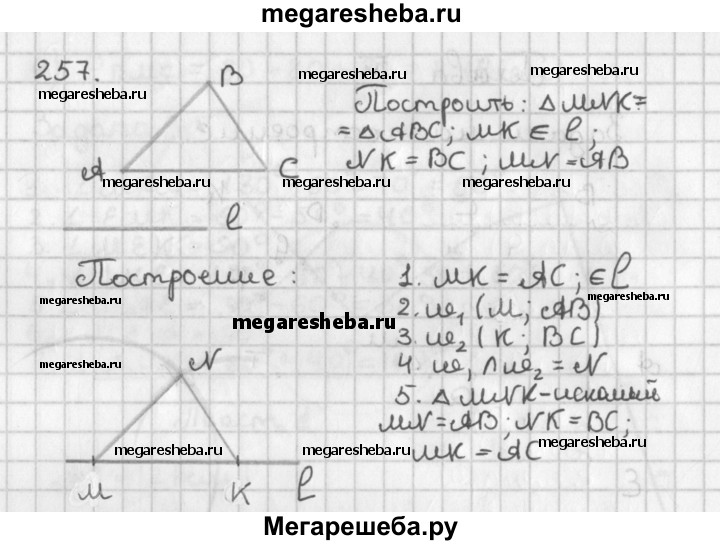 megaresheba.ru
257.
megaresheba.ru
B
megaresheba.ru
megaresheba.ru
Построить: Δ MNK=
= Δ ABC; MK ∈ l;
NK = BC ; MN = AB
A
C
megaresheba.ru
megaresheba.ru
megaresheba.ru
l
Построение :
1. MK = AC; ∈ l
megaresheba.ru
megaresheba.ru
2. ω₁ ( M; AB)
megaresheba.ru
3. ω₂ ( K; BC)
4. ω₁ ∩ ω₂ = N
N
megaresheba.ru
megaresheba.ru
5. Δ MNK - искомый
MN = AB; NK = BC;
MK = AC
megaresheba.ru
megaresheba.ru
megaresheba.ru
M
K
l
Мегарешеба.ру